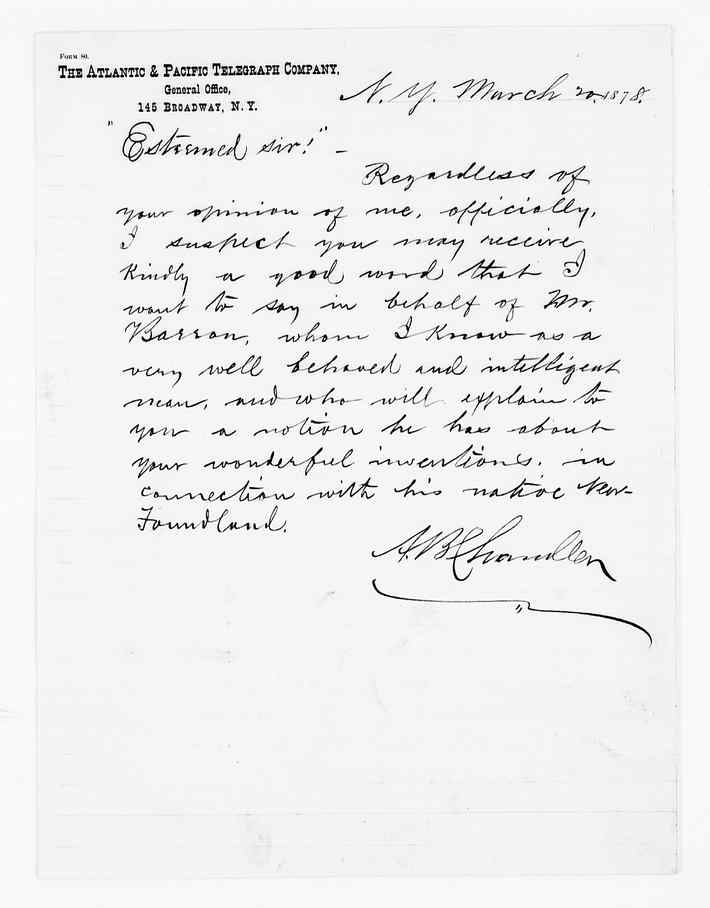 Form 80.
The Atlantic & Pacific Telegraph Company,
General Office,
145 Broadway, N.Y.
N. Y. March 20, 1878.
"Esteemed sir!" –
Regardless of
your opinion of me, officially,
I suspect you may receive
kindly a good word that I
want to say in behalf of Mr.
Barron, whom I know as a
very well behaved and intelligent
man, and who will explain to
you a notion he has about
your wonderful inventions. in
connection with his native New-
Foundland.
A. B. Chandler